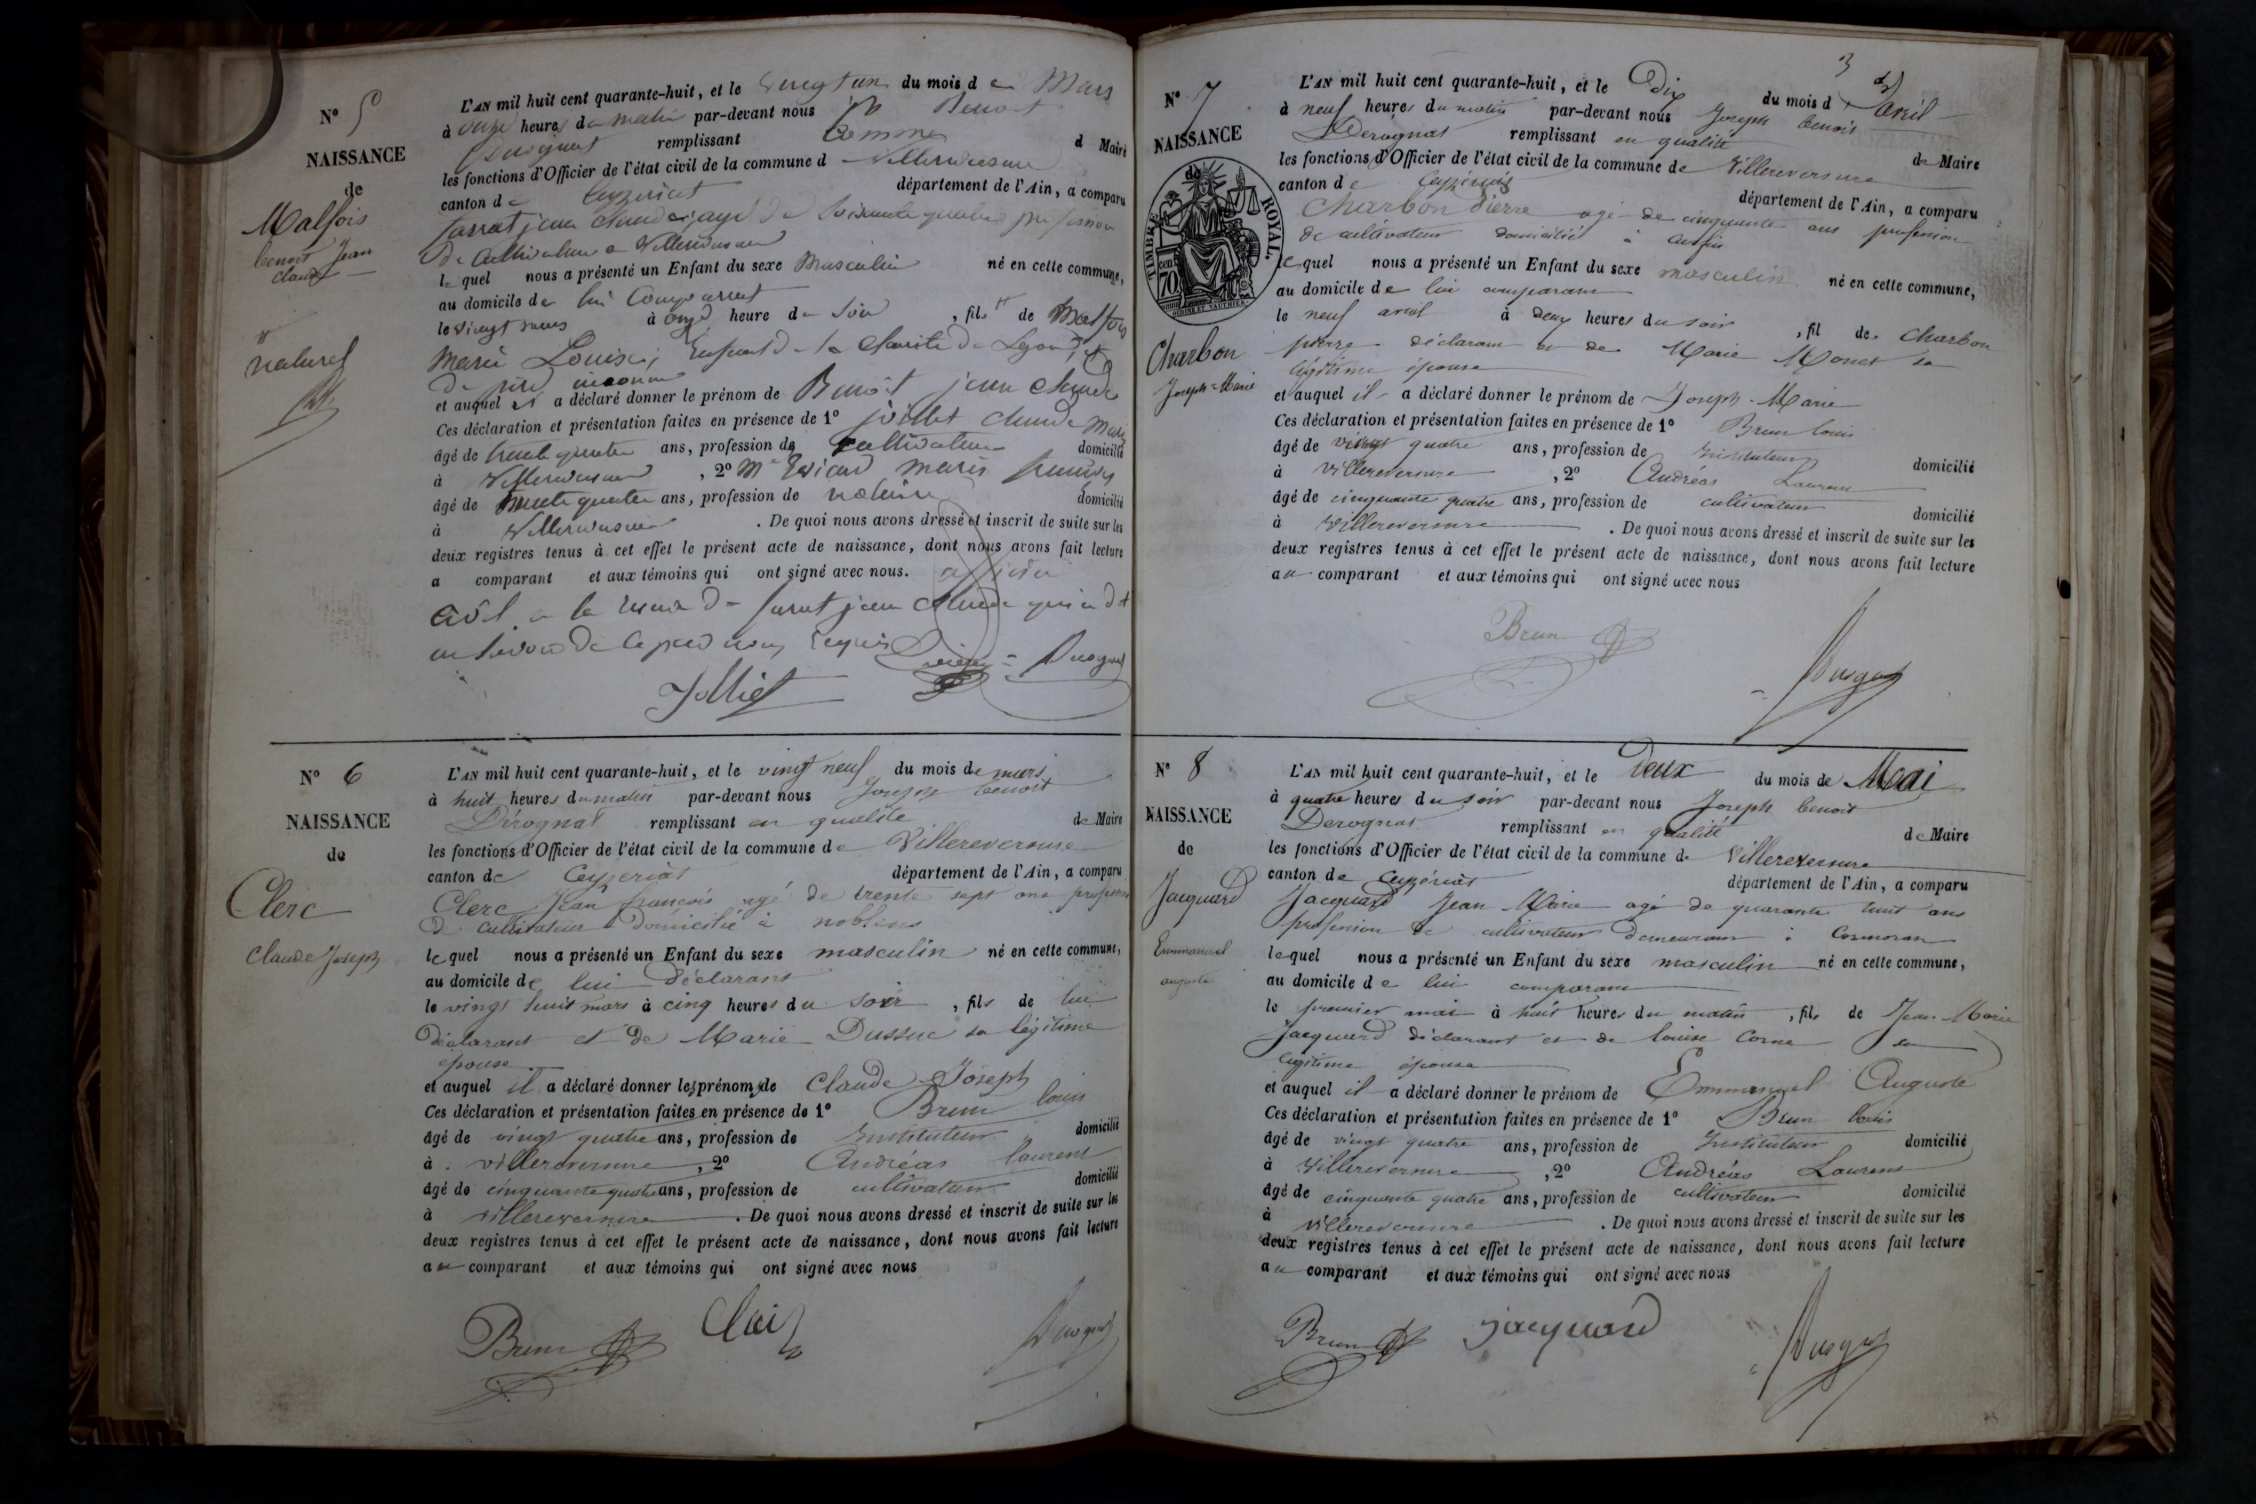 N° 5
NAISSANCE
de
Malfois
benoit Jean
claude
naturel
L'AN mil huit cent quarante-huit, et le vingt un du mois de Mars
à onze heures du matin par-devant nous Benoit
remplissant comme d Maire
les fonctions d'Officier de l'état civil de la commune d Villereversure
canton de Ceyzeriat département de l'Ain, a comparu
jean claude, agé de soixante quatre profession
de cultivateur a Villereversure
le quel nous a présenté un Enfant du sexe Masculin né en cette commune,
au domicile de lui Comparant
le vingt à onze heure du soir, fils de Malfois
Marie Louise, Enfant de la Charité de Lyon, et
de père inconnu
et auquel il a déclaré donner le prénom de Benoît jean claude
Ces déclaration et présentation faites en présence de 1° joillet claude Marie
âgé de trente quatre ans, profession de cultivateur domicilié
à Villereversure, 2° Me marie
âgé de trente quatre ans, profession de notaire domicilié
à Villereversure. De quoi nous avons dressé et inscrit de suite sur les
deux registres tenus à cet effet le présent acte de naissance, dont nous avons fait lecture
a comparant et aux témoins qui ont signé avec nous.
a la de jean claude qui a dit
ne savoir de ce
Jolliet
N° 6
NAISSANCE
de
Clerc
Claude Joseph
L'AN mil huit cent quarante-huit, et le vingt neuf du mois de mars
à huit heures du matin par-devant nous Joseph benoit
Dérognat remplissant en qualité de Maire
les fonctions d'Officier de l'état civil de la commune de Villereversure
canton de Ceyzeriat département de l'Ain, a comparu
Clerc Jean françois agé de trente sept ans profession
de cultivateur domicilié à noblens
le quel nous a présenté un Enfant du sexe masculin né en cette commune,
au domicile de lui déclarant
le vingt huit mars à cinq heures du soir, fils de lui
déclarant et de Marie Dussuc sa légitime
épouse
et auquel il a déclaré donner les prénoms de Claude Joseph
Ces déclaration et présentation faites en présence de 1° Brun louis
âgé de vingt quatre ans, profession de Instituteur domicilié
à villereversure, 2° Andréas laurent
âgé de cinquante quatre ans, profession de cultivateur domicilié
à villereversure. De quoi nous avons dressé et inscrit de suite sur les
deux registres tenus à cet effet le présent acte de naissance, dont nous avons fait lecture
au comparant et aux témoins qui ont signé avec nous
Brun
3
N° 7
NAISSANCE
de
TIMBRE ROYAL
70
Charbon
Joseph-Marie
L'AN mil huit cent quarante-huit, et le Dix du mois d'avril
à neuf heures du matin par-devant nous Joseph benoit
Derognat remplissant en qualité de Maire
les fonctions d'Officier de l'état civil de la commune de Villereversure
canton de Ceyzériat département de l'Ain, a comparu
Charbon Pierre agé de cinquante ans profession
de cultivateur domicilié à
le quel nous a présenté un Enfant du sexe masculin né en cette commune,
au domicile de lui comparant
le neuf avril à deux heures du soir, fil de Charbon
pierre déclarant et de Marie Monet sa
légitime épouse
et auquel il a déclaré donner le prénom de Joseph-Marie
Ces déclaration et présentation faites en présence de 1° Brun louis
âgé de vingt quatre ans, profession de Instituteur domicilié
à villereversure, 2° Andréas Laurent
âgé de cinquante quatre ans, profession de cultivateur domicilié
à villereversure. De quoi nous avons dressé et inscrit de suite sur les
deux registres tenus à cet effet le présent acte de naissance, dont nous avons fait lecture
au comparant et aux témoins qui ont signé avec nous
Brun
N° 8
NAISSANCE
de
Jacquard
Emmanuel
auguste
L'AN mil huit cent quarante-huit, et le Deux du mois de Mai
à quatre heures du soir par-devant nous Joseph benoit
Derognat remplissant en qualité de Maire
les fonctions d'Officier de l'état civil de la commune de Villereversure
canton de Ceyzériat département de l'Ain, a comparu
Jacquard Jean Marie agé de quarante huit ans
profession de cultivateur demeurant à Cormoran
le quel nous a présenté un Enfant du sexe masculin né en cette commune,
au domicile de lui comparant
le premier mai à huit heures du matin, fils de Jean-Marie
Jacquard déclarant et de louise Corne sa
légitime épouse
et auquel il a déclaré donner le prénom de Emmanuel Auguste
Ces déclaration et présentation faites en présence de 1° Brun louis
âgé de vingt quatre ans, profession de Instituteur domicilié
à Villereversure, 2° Andréas Laurent
âgé de cinquante quatre ans, profession de cultivateur domicilié
à villereversure. De quoi nous avons dressé et inscrit de suite sur les
deux registres tenus à cet effet le présent acte de naissance, dont nous avons fait lecture
au comparant et aux témoins qui ont signé avec nous
Brun jacquard